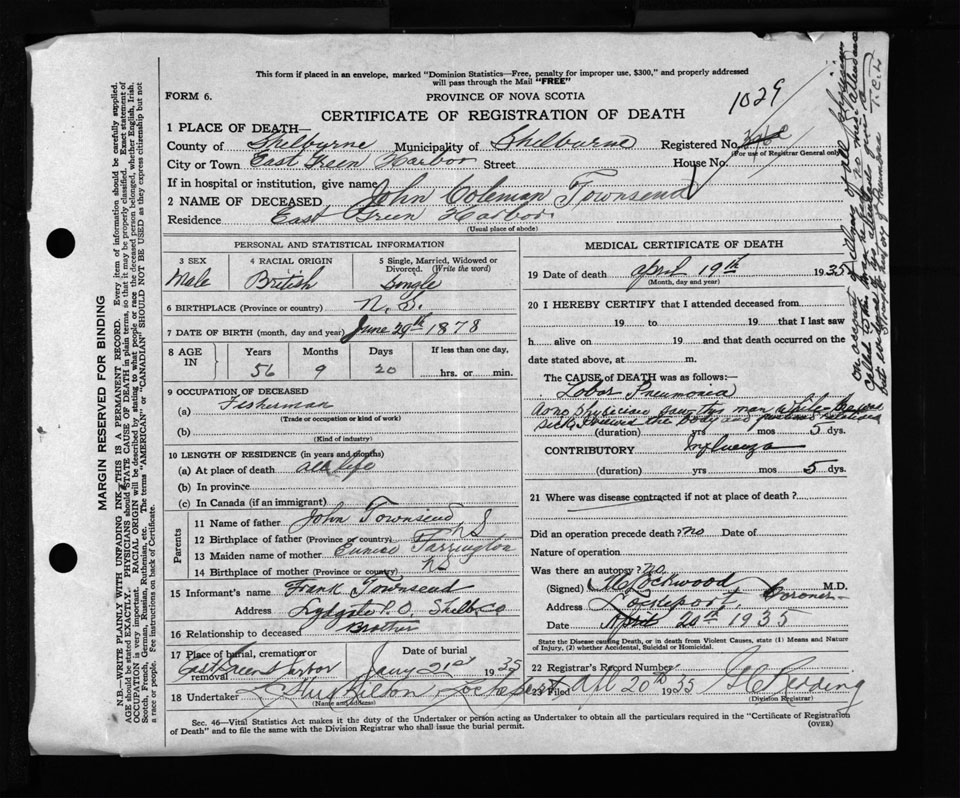 This form if placed in an envelope, marked "Dominion Statistics—Free, penalty for improper use, $300," and properly addressed
will pass through the Mail "FREE"
FORM 6.
PROVINCE OF NOVA SCOTIA
1029
CERTIFICATE OF REGISTRATION OF DEATH
1 PLACE OF DEATH—
County of Shelburne Municipality of Shelburne Registered No.
(For use of Registrar General only)
City or Town East Green Harbor Street House No.
If in hospital or institution, give name
2 NAME OF DECEASED John Coleman Townsend
Residence East Green Harbor
(Usual place of abode)
PERSONAL AND STATISTICAL INFORMATION
3 SEX 4 RACIAL ORIGIN 5 Single, Married, Widowed or Divorced. (Write the word)
Male British Single
6 BIRTHPLACE (Province or country) N.S.
7 DATE OF BIRTH (month, day and year) June 29th 1878
8 AGE IN Years Months Days If less than one day,
56 9 20 hrs. or min.
9 OCCUPATION OF DECEASED
(a) Fisherman
(Trade or occupation or kind of work)
(b)
(Kind of industry)
10 LENGTH OF RESIDENCE (in years and months)
(a) At place of death all life
(b) In province
(c) In Canada (if an immigrant)
Parents
11 Name of father John Townsend
12 Birthplace of father (Province or country) N S
13 Maiden name of mother Eunice
14 Birthplace of mother (Province or country) N S
15 Informant's name Frank Townsend
Address P.O. Shelb Co
16 Relationship to deceased Brother
17 Place of burial, cremation or removal Date of burial
East Green Harbor 21st 1935
18 Undertaker Lockeport
(Name and address)
MEDICAL CERTIFICATE OF DEATH
19 Date of death April 19th 1935
(Month, day and year)
20 I HEREBY CERTIFY that I attended deceased from
19 to 19 that I last saw
h alive on 19 and that death occurred on the
date stated above, at m.
The CAUSE OF DEATH was as follows:—
Lobar Pneumonia
physician saw this man while he was
sick viewed the body and
(duration) yrs mos 5 dys.
CONTRIBUTORY Influenza
(duration) yrs mos 5 dys.
21 Where was disease contracted if not at place of death?
Did an operation precede death? no Date of
Nature of operation
Was there an autopsy? no
(Signed) Lockwood M.D.
Coroner
Address Lockeport
Date April 20th 1935
State the Disease causing Death, or in death from Violent Causes, state (1) Means and Nature of Injury, (2) whether Accidental, Suicidal or Homicidal.
22 Registrar's Record Number
23 Filed 20th 1935
(Division Registrar)
Sec. 46—Vital Statistics Act makes it the duty of the Undertaker or person acting as Undertaker to obtain all the particulars required in the "Certificate of Registration
of Death" and to file the same with the Division Registrar who shall issue the burial permit.
(OVER)
MARGIN RESERVED FOR BINDING
N.B.—WRITE PLAINLY WITH UNFADING INK—THIS IS A PERMANENT RECORD. Every item of information should be carefully supplied.
AGE should be stated EXACTLY. PHYSICIANS should STATE CAUSE OF DEATH in plain terms, so that it may be properly classified. Exact statement of
OCCUPATION is very important. RACIAL ORIGIN will be described by stating to what people or race the deceased person belonged, whether English, Irish,
Scotch, French, German, Russian, Ruthenian, etc. The terms "AMERICAN" or "CANADIAN" SHOULD NOT BE USED as they express citizenship but not
a race or people. See instructions on back of Certificate.